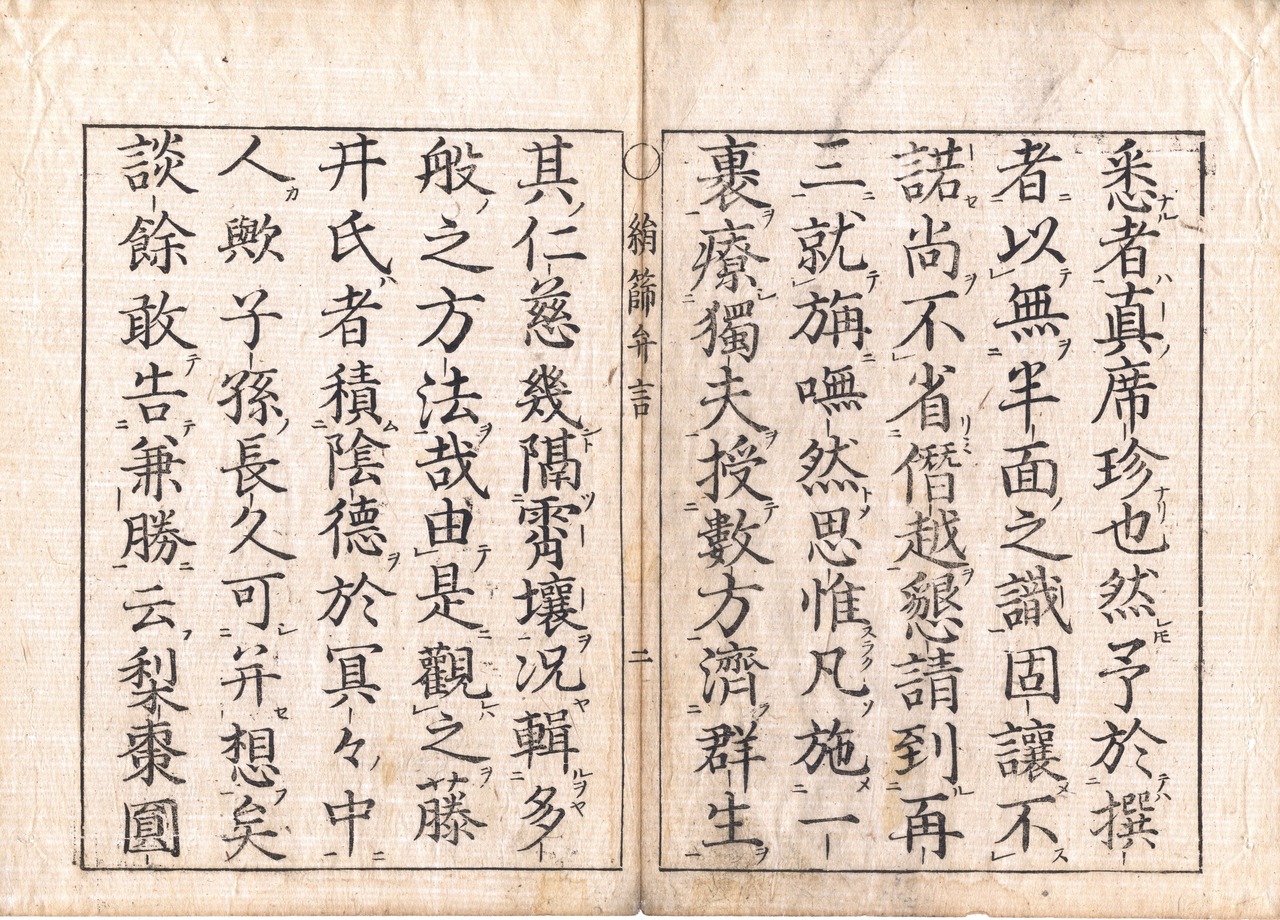 悉者真席珍也然予於撰
者以無半面之識固讓不
諾尚不省僭越懇請到再
三就旃嘸然思惟凡施一
裹療獨夫授數方濟群生
絹篩弁言 二
其仁慈幾隔霄壤況輯多
般之方法哉由是觀之藤
井氏者積陰德於冥々中
人歟子孫長久可并想矣
談餘敢告兼勝云梨棗圓